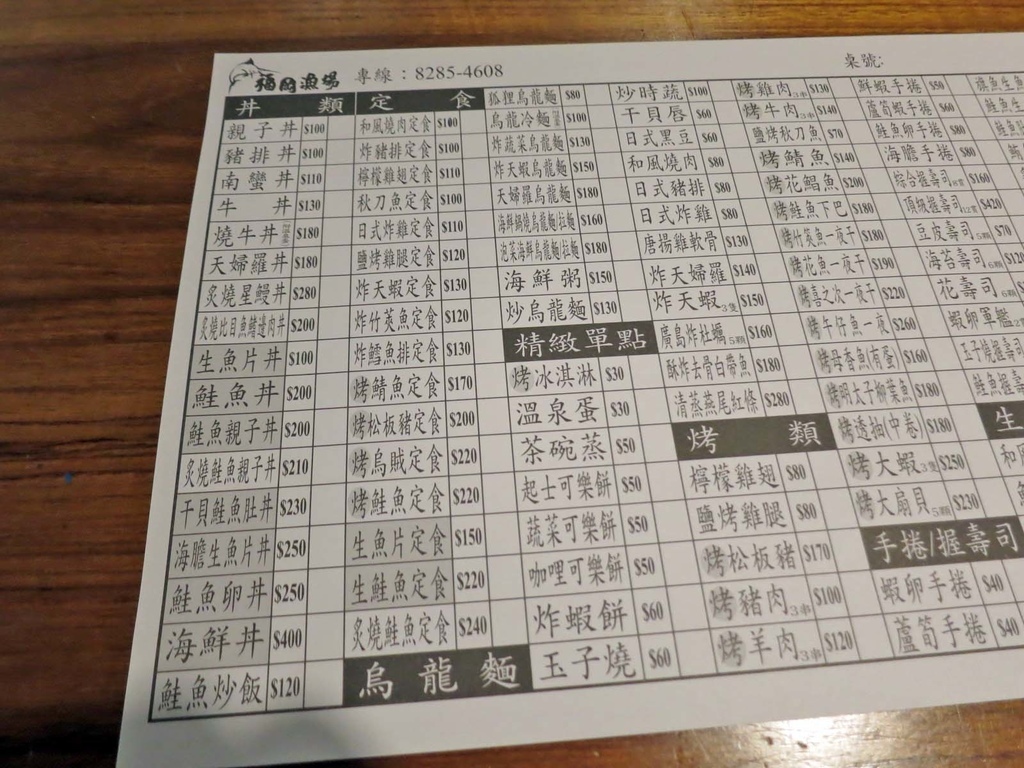 福岡漁場 專線：8285-4608
桌號:
丼類
親子丼 $100
豬排丼 $100
南蠻丼 $110
牛丼 $130
燒牛丼 $180
天婦羅丼 $180
炙燒星鰻丼 $280
炙燒比目魚鰭邊肉丼 $200
生魚片丼 $100
鮭魚丼 $200
鮭魚親子丼 $200
炙燒鮭魚親子丼 $210
干貝鮭魚肚丼 $230
海膽生魚片丼 $250
鮭魚卵丼 $250
海鮮丼 $400
鮭魚炒飯 $120
定食
和風燒肉定食 $100
炸豬排定食 $100
檸檬雞定食 $110
秋刀魚定食 $100
日式炸雞定食 $110
鹽烤雞腿定食 $120
炸天蝦定食 $130
炸竹筴魚定食 $120
炸鱈魚排定食 $130
烤鯖魚定食 $170
烤松板豬定食 $200
烤烏賊定食 $220
烤鮭魚定食 $220
生魚片定食 $150
生鮭魚定食 $220
炙燒鮭魚定食 $240
烏龍麵
狐狸烏龍麵 $80
烏龍冷麵 $100
炸蔬菜烏龍麵 $130
炸天蝦烏龍麵 $150
天婦羅烏龍麵 $180
海鮮鍋燒烏龍麵/拉麵 $160
泡菜海鮮烏龍麵/拉麵 $180
海鮮粥 $150
炒烏龍麵 $130
精緻單點
烤冰淇淋 $30
溫泉蛋 $30
茶碗蒸 $50
起士可樂餅 $50
蔬菜可樂餅 $50
咖哩可樂餅 $50
炸蝦餅 $60
玉子燒 $60
炒時蔬 $100
干貝唇 $60
日式黑豆 $60
和風燒肉 $80
日式豬排 $80
日式炸雞 $80
唐揚雞軟骨 $130
炸天婦羅 $140
炸天蝦3隻 $150
廣島炸牡蠣5顆 $160
酥炸去骨白帶魚 $180
清蒸燕尾紅條 $280
烤類
檸檬雞翅 $80
鹽烤雞腿 $80
烤松板豬 $170
烤豬肉3串 $100
烤羊肉3串 $120
烤雞肉3串 $130
烤牛肉3串 $140
鹽烤秋刀魚 $70
烤鯖魚 $140
烤花鯧魚 $200
烤鮭魚下巴 $180
烤竹筴魚一夜干 $180
烤花魚一夜干 $190
烤喜之次一夜干 $220
烤午仔魚一夜 $260
烤母香魚(有蛋) $160
烤明太子柳葉魚 $180
烤透抽(中卷) $180
烤大蝦3隻 $250
烤大扇貝5顆 $230
手捲/握壽司
蝦卵手捲 $40
蘆筍手捲 $40
鮮蝦手捲 $50
蘆筍蝦手捲 $60
鮭魚卵手捲 $80
海膽手捲 $80
綜合握壽司 $160
頂級握壽司 $420
豆皮壽司 $70
海苔壽司6顆 $120
花壽司6顆
蝦卵軍艦
玉子燒握壽
鮭魚握壽
生
和風